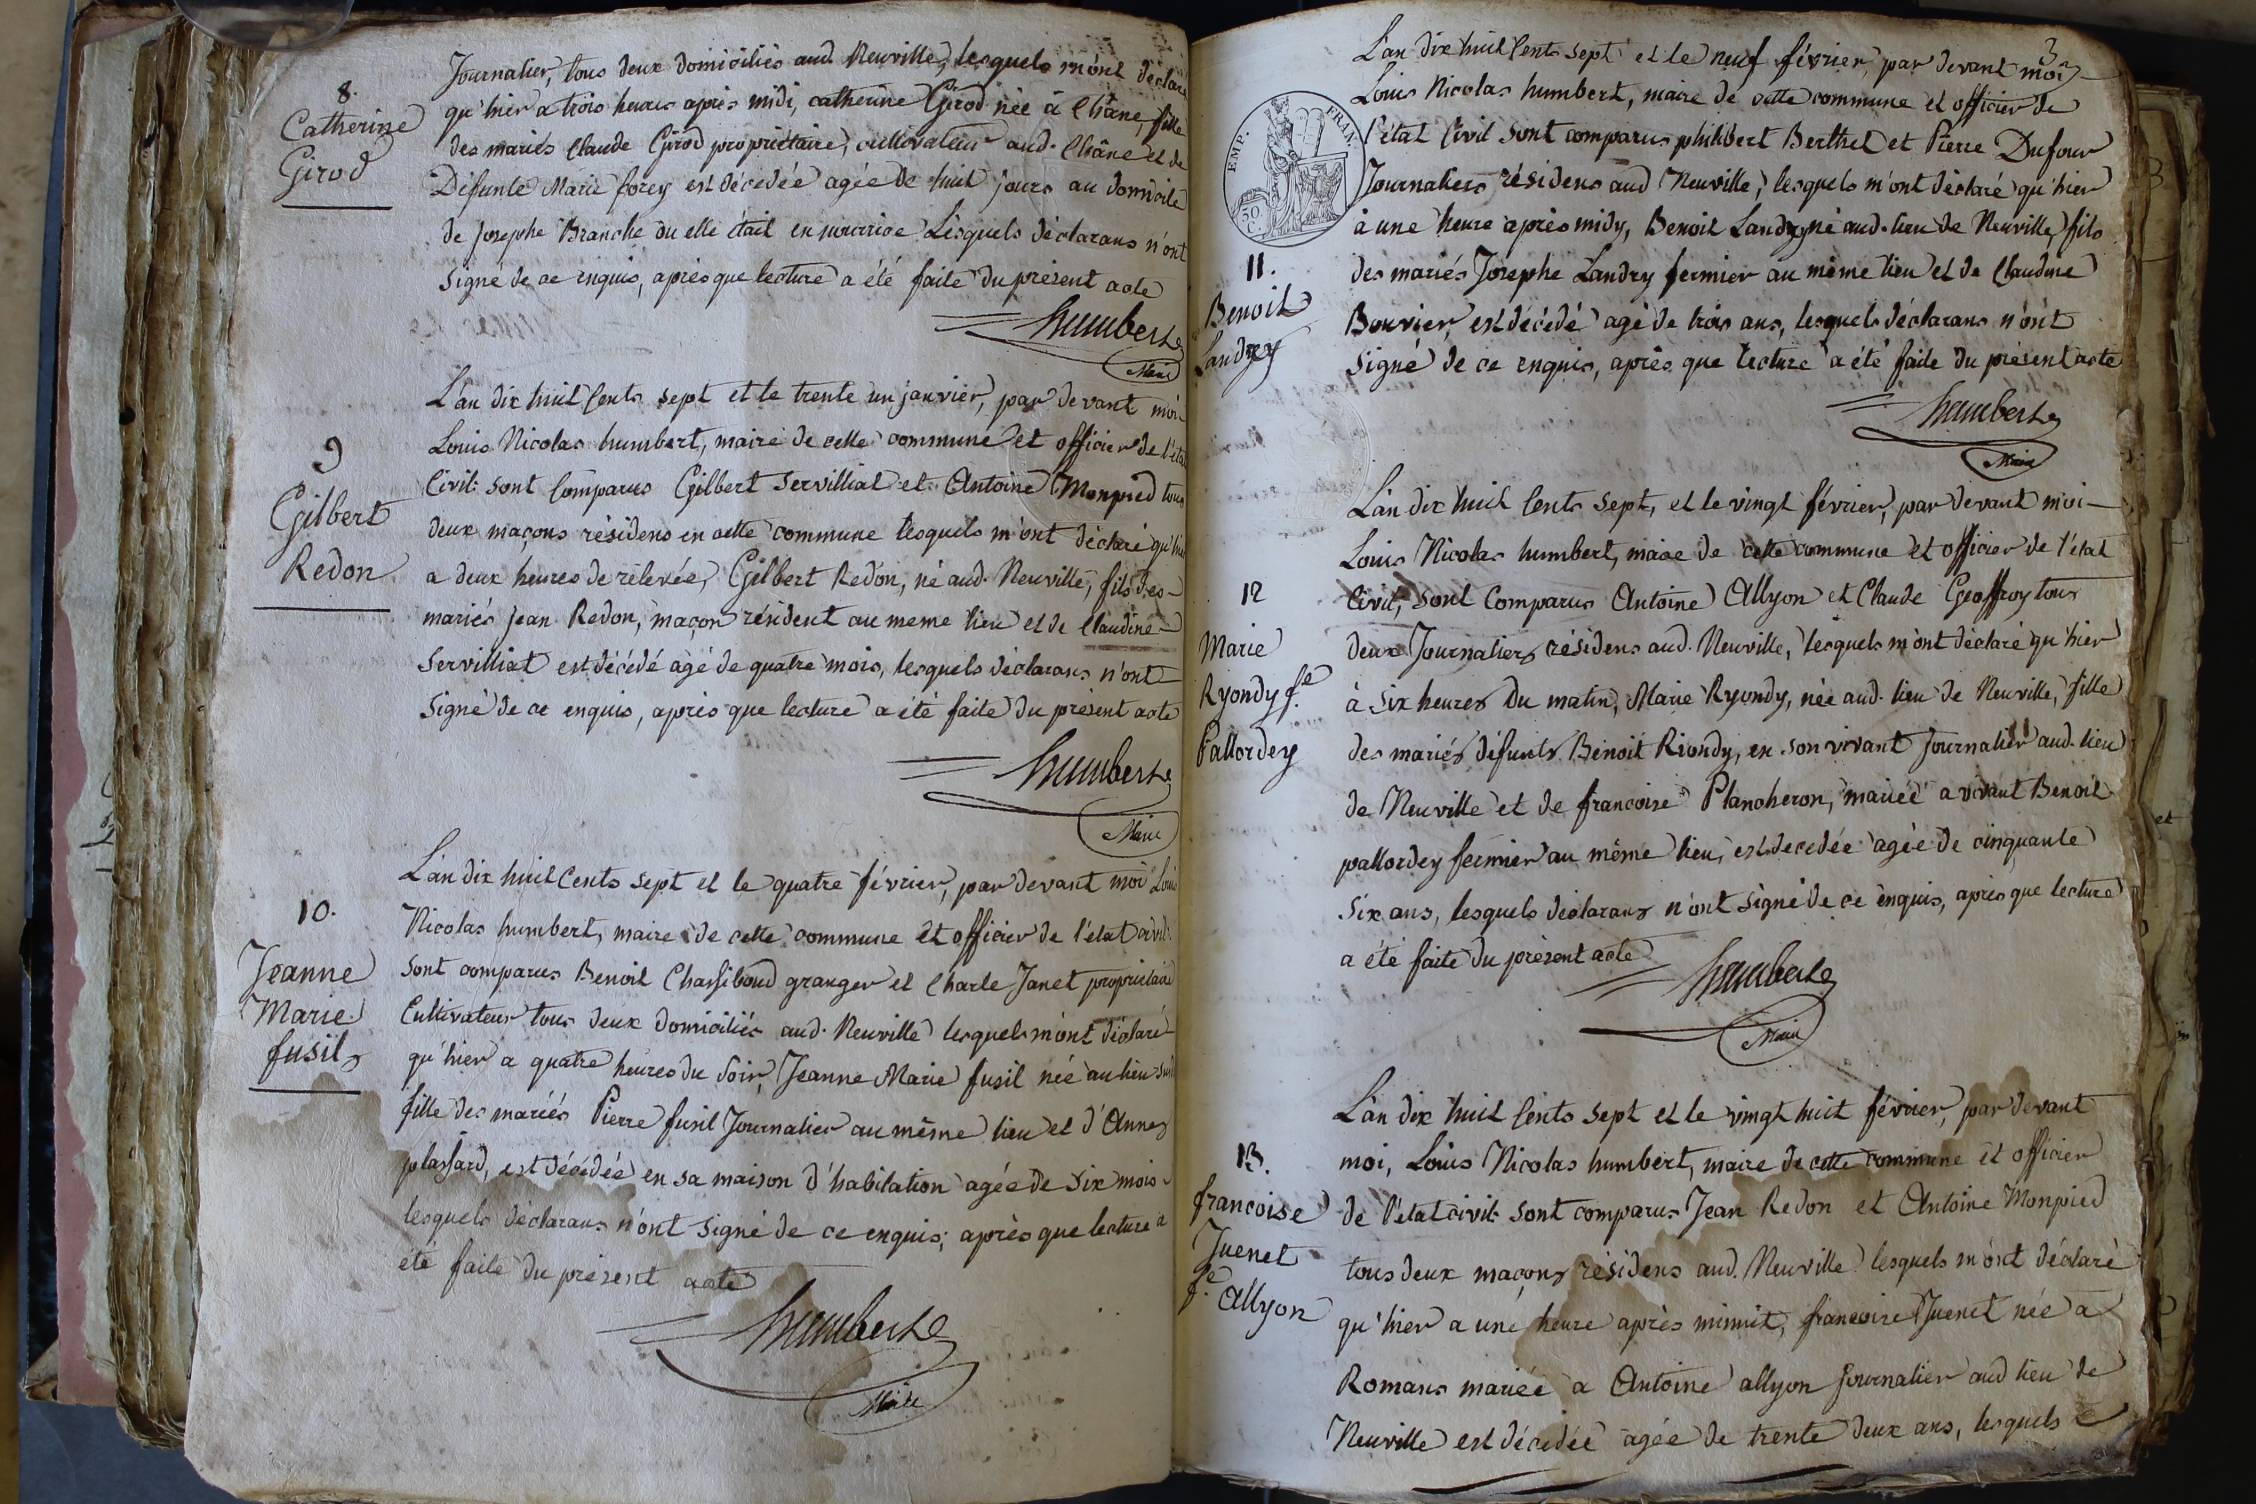 8.
Catherine
Girod
Journalier, tous deux domiciliés aud. Neuville, lesquels m'ont déclaré
qu'hier a trois heures après midi, catherine Girod née à Chane, fille
des mariés Claude Girod propriétaire, cultivateur aud. Chane et de
Défunte Marie forey est décedée agée de huit jours au domicile
de Josephe Branche ou elle était en nourrice Lesquels déclarans n'ont
signé de ce enquis, après que lecture a été faite du présent acte
humbert
Maire
9
Gilbert
Redon
L'an dix huit Cents sept et le trente un janvier, par devant moi
Louis Nicolas humbert, maire de cette commune et officier de l'état
Civil sont Comparus Gilbert Servilliat et Antoine Monpied tous
deux maçons résidens en cette commune lesquels m'ont déclaré qu'hier
a deux heures de relevée, Gilbert Redon, né aud. Neuville, fils des
mariés Jean Redon, maçon résident au meme lieu et de Claudine
Servilliat est décédé agé de quatre mois, lesquels déclarans n'ont
Signé de ce enquis, après que lecture a été faite du présent acte
humbert
Maire
10.
Jeanne
Marie
fusil
L'an dix huit Cents sept et le quatre février, par devant moi Louis
Nicolas humbert, maire de cette commune et officier de l'état civil
sont comparus Benoit Chassiboud granger et Charle Janet propriétaire
Cultivateur tous deux domiciliés aud. Neuville lesquels m'ont déclaré
qu'hier a quatre heures du soir, Jeanne Marie fusil née au lieu susd
fille des mariés Pierre fusil Journalier au même lieu et d'Anne
plassard, est décédée en sa maison d'habitation agée de six mois
lesquels déclarans n'ont signé de ce enquis; après que lecture a
été faite du présent acte
humbert
Maire
3
L'an dix huit Cents sept et le neuf février, par devant moi
Louis Nicolas humbert, maire de cette commune et officier de
l'état Civil sont comparus philibert Berthet et Pierre Dufour
Journaliers résidens aud Neuville, lesquels m'ont déclaré qu'hier
à une heure après midy, Benoit Landry né aud. lieu de Neuville, fils
des mariés Josephe Landry fermier au même lieu et de Claudine
Bouvier, est décédé agé de trois ans, lesquels déclarans n'ont
Signé de ce enquis, après que lecture a été faite du présent acte
EMP. FRAN.
50 C.
11.
Benoit
Landry
humbert
Maire
12
Marie
Ryondy fe.
Pallordey
L'an dix huit Cents sept, et le vingt février, par devant moi
Louis Nicolas humbert, maire de cette commune et officier de l'état
Civil, sont Comparus Antoine Allyon et Claude Geoffroy tous
deux Journaliers résidens aud. Neuville, lesquels m'ont déclaré qu'hier
à six heures du matin, Marie Ryondy, née aud. lieu de Neuville, fille
des mariés défunts Benoit Riondy, en son vivant Journalier aud. lieu
de Neuville et de francoise Plancheron, mariée a vivant Benoit
pallordey fermier au même lieu, est decedée agée de cinquante
six ans, lesquels déclarans n'ont signé de ce enquis, après que lecture
a été faite du présent acte
humbert
Maire
13.
francoise
Juenet
fe. Allyon
L'an dix huit Cents sept et le vingt huit février, par devant
moi, Louis Nicolas humbert, maire de cette commune et officier
de l'état civil sont comparus Jean Redon et Antoine Monpied
tous deux maçons résidens aud. Neuville lesquels m'ont déclaré
qu'hier a une heure après minuit, francoise Juenet née a
Romans mariée a Antoine allyon Journalier aud lieu de
Neuville est décédée agée de trente deux ans, lesquels